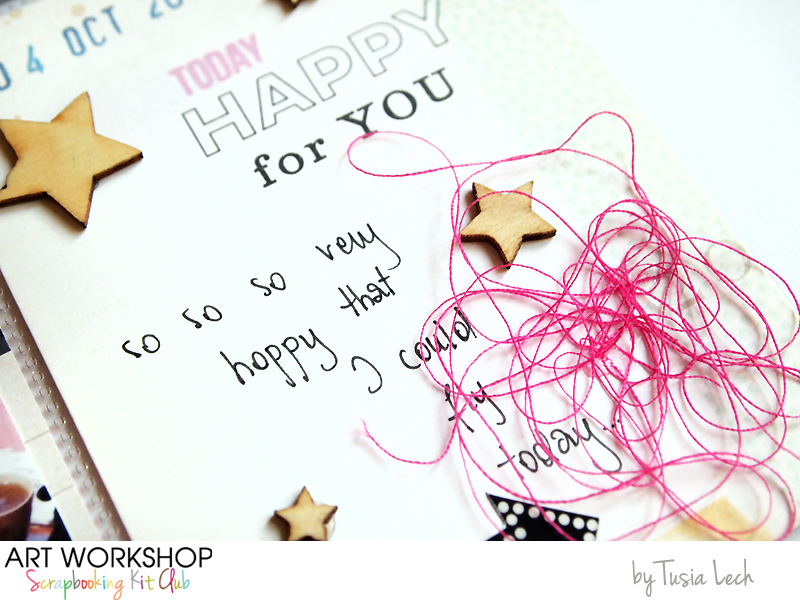 04 OCT 20
TODAY
HAPPY
for YOU
so so so very
happy that
I could
fly
today...
ART WORKSHOP
Scrapbooking Kit Club
by Tusia Lech